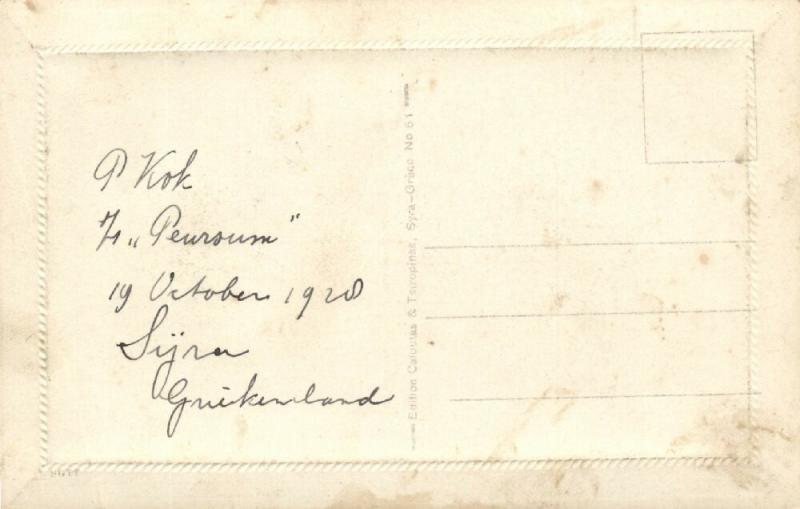 P Kok
"Peursum"
19 October 1928
Sÿra
Griekenland
Edition Caloutas & Tsiropinas, Syra-Grèce No 61